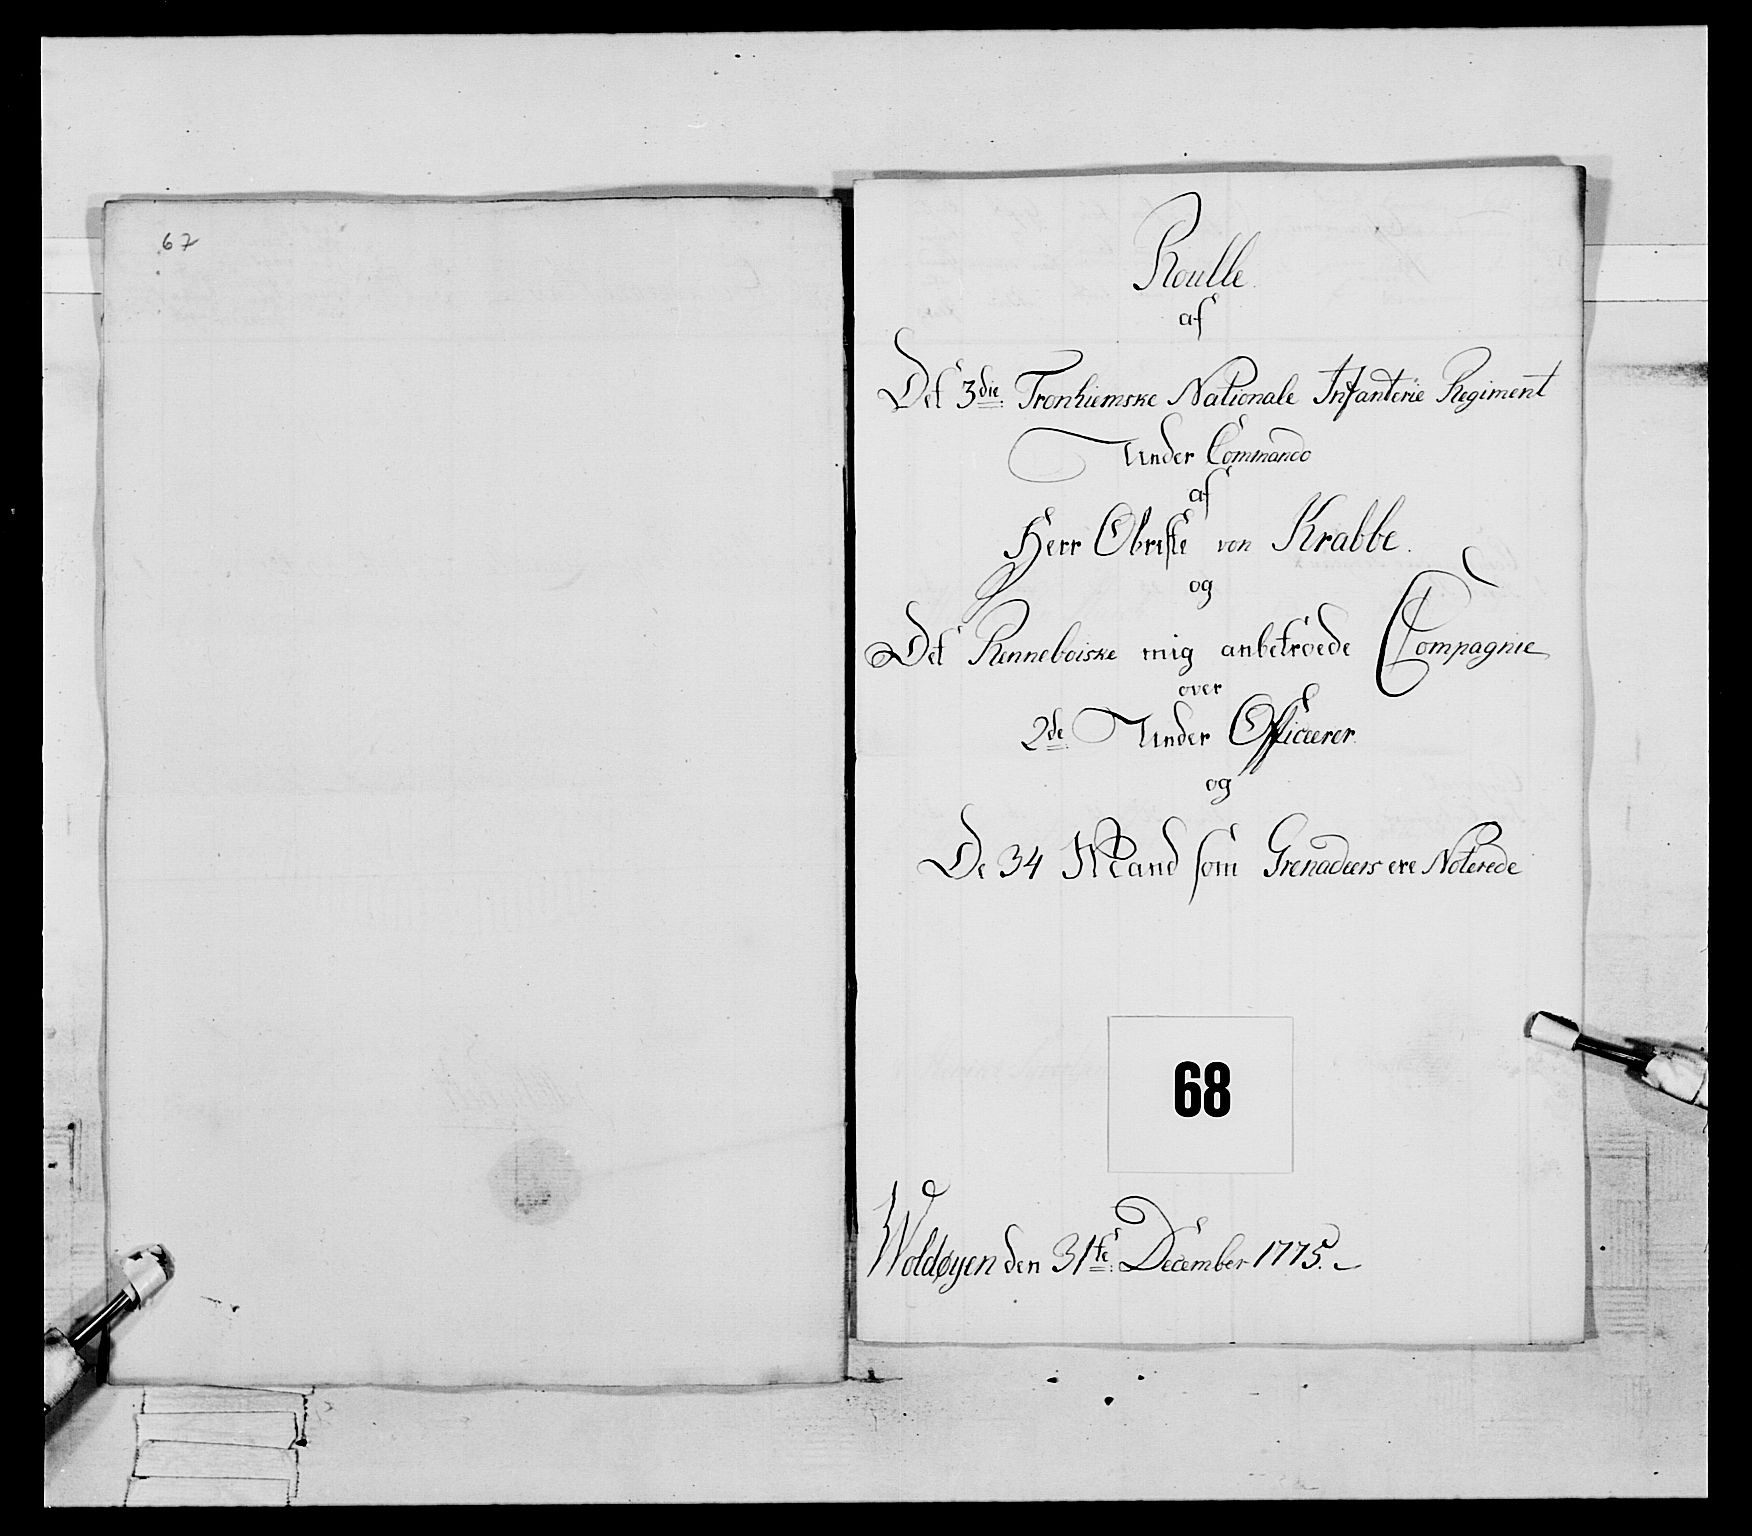 67
Roulle
af
Det 3die Tronhiemske Nationale Infanterie Regiment
Under Commando
af
Herr Obriste von Krabbe.
og
Det Renneboiske mig anbetroede Compagnie
over
2de Under Officierer
og
De 34 Mand som Grenadeers ere Noterede
68
Woldøyen den 31te December 1775.